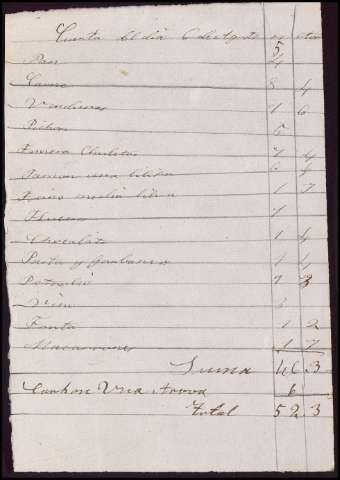 Cuenta del dia 6 de Agto
Pan 4
Carne 8 4
Verduras 1 6
Pichon 5
Ternera Chuletas 7 4
Jamon una libra 6 4
Tocino media libra 1 7
Huevos 7
Chocolate 1 4
Pasta y garbanzo 1 4
Petroleo 9 3
Vino 3
Fruta 1 2
Macarrones 1 7
Suma 46 3
Carbon Una Arroba 6
Total 52 3